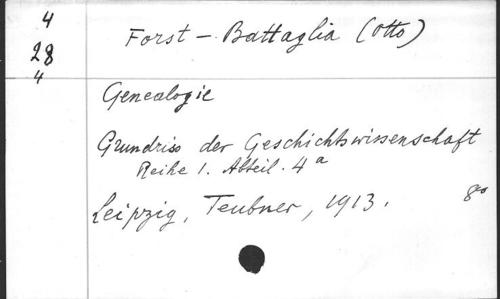 4
28
4
Forst - Battaglia (Otto)
Genealogie
Grundriss der Geschichtswissenschaft
Reihe 1. Abteil. 4 a
Leipzig, Teubner, 1913. 8°